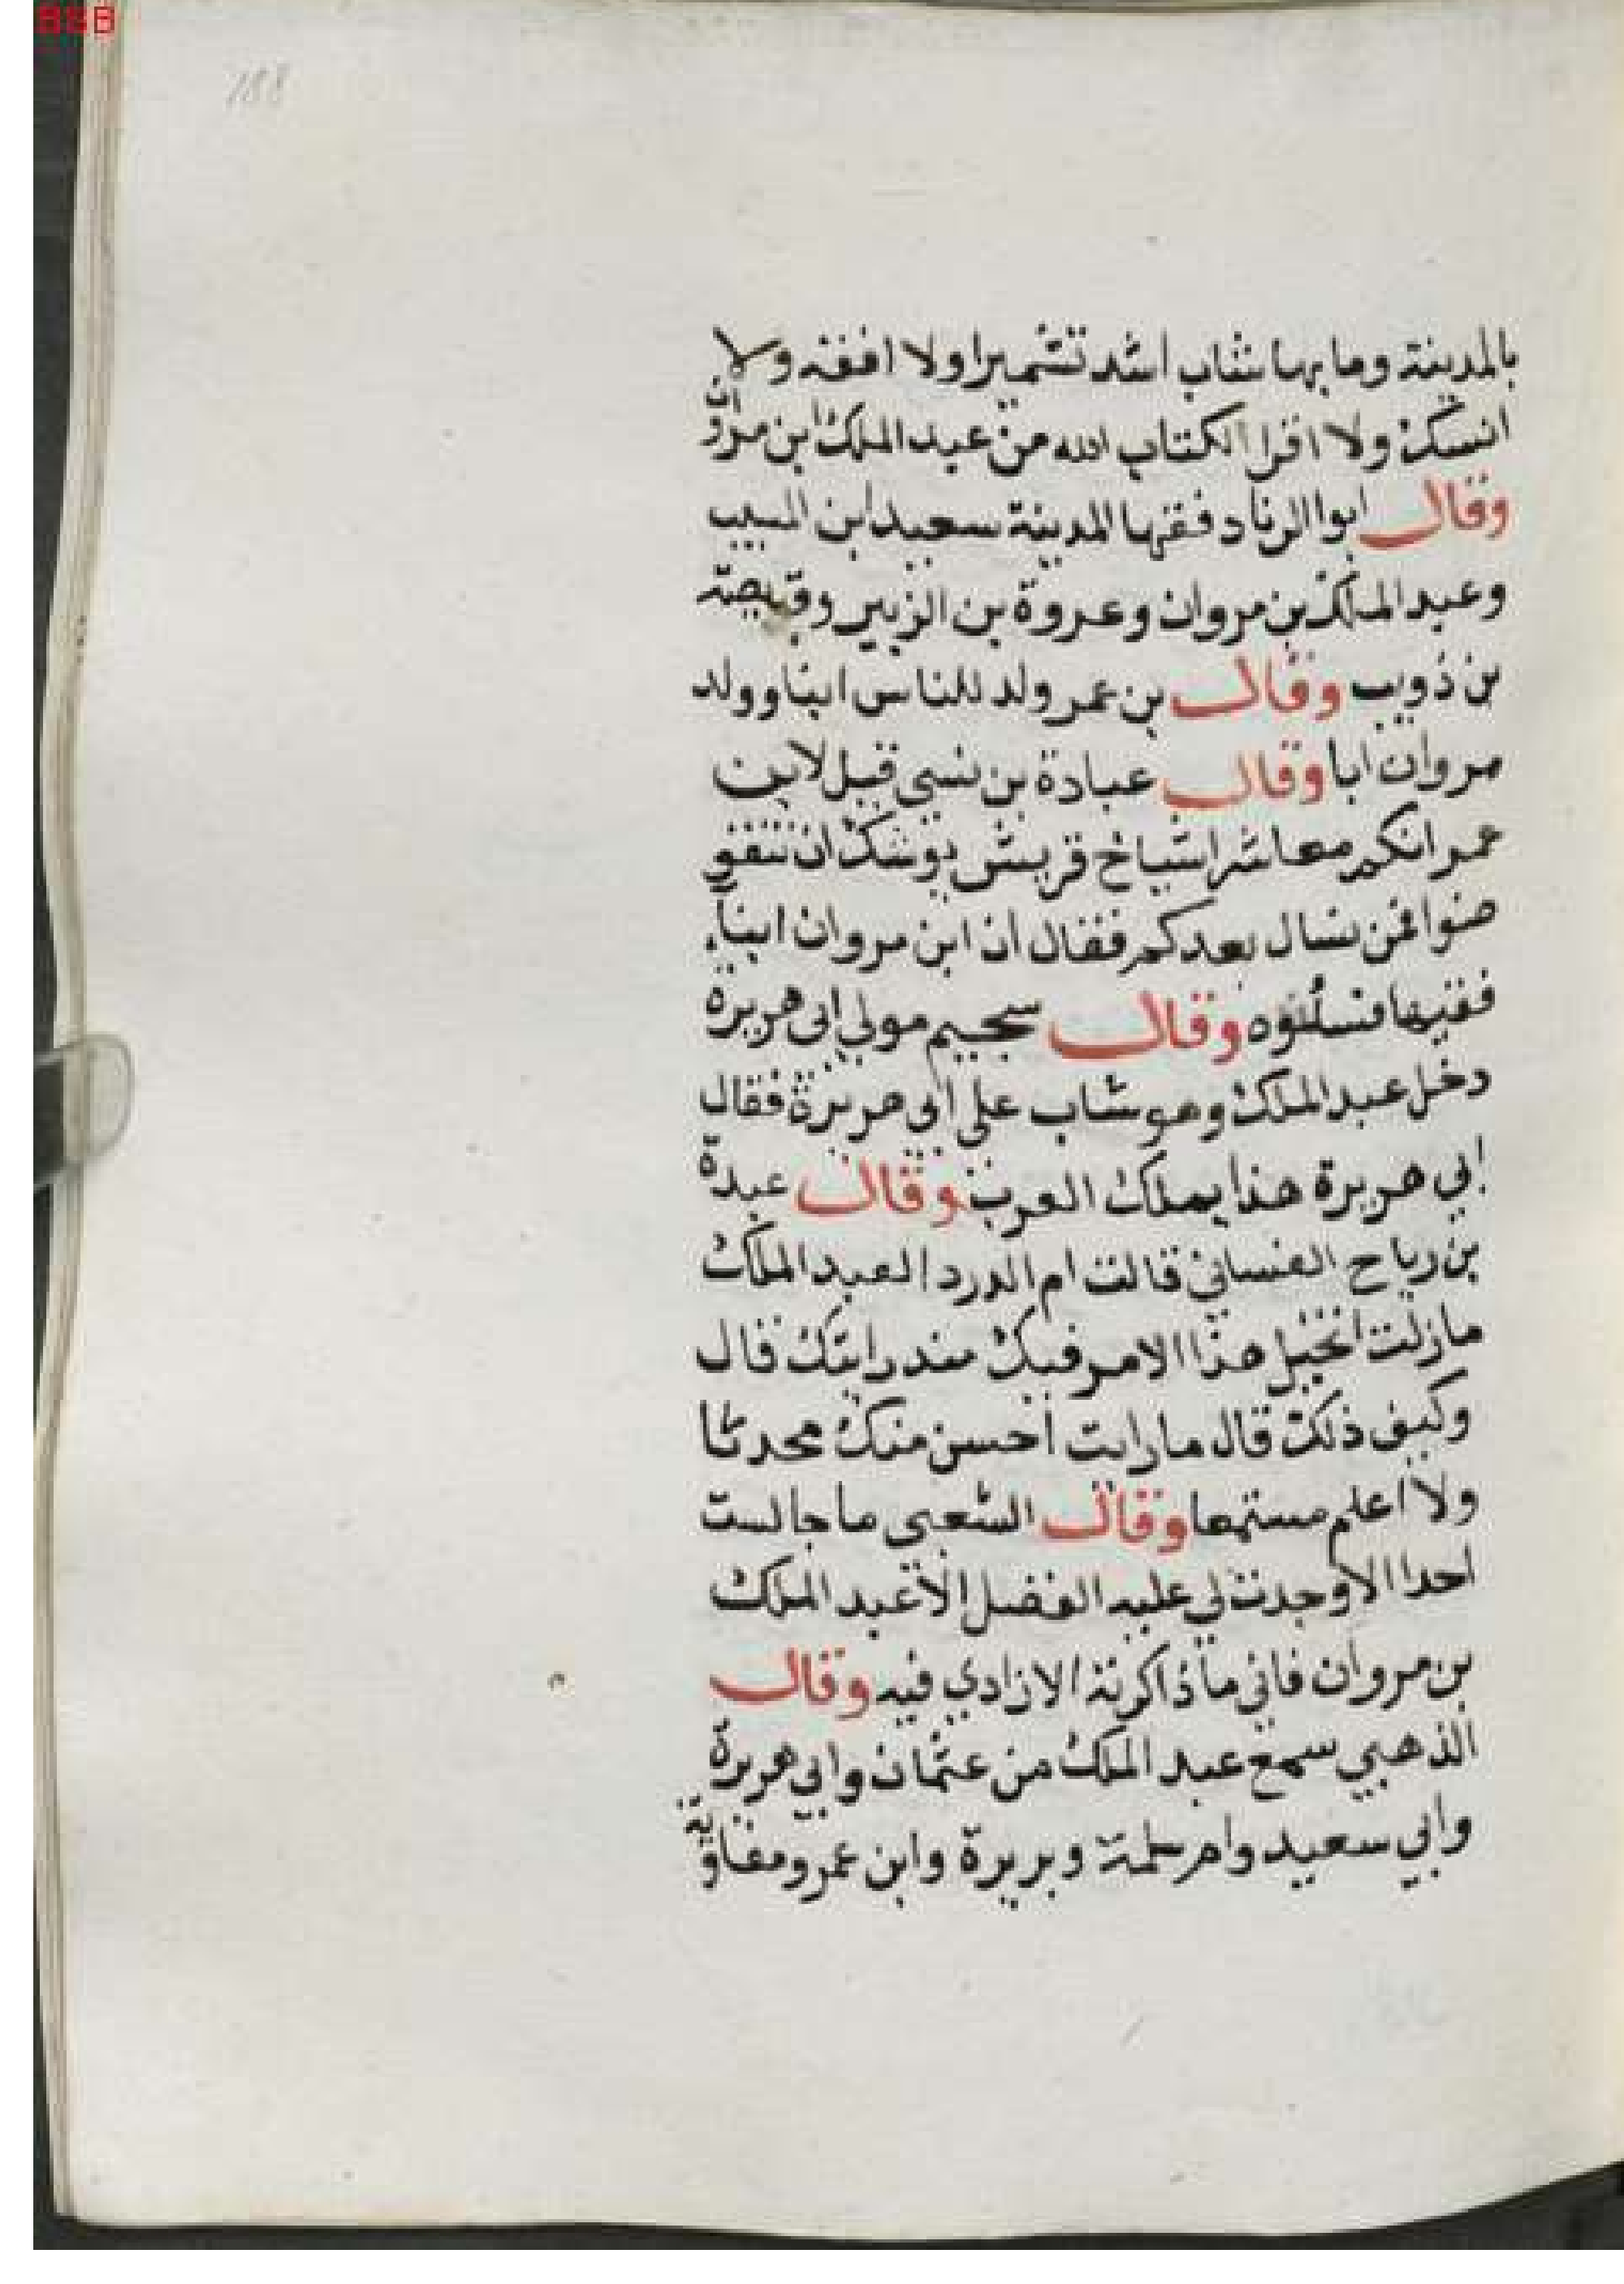 BSB
188
بالمدينة وما بها شاب اشد تشميرا ولا افقه ولا
انسك ولا اقرا لكتاب الله من عبد الملك ابن مروان
وقال ابوا الزناد فقها المدينة سعيد ابن المسيب
وعبد الملك بن مروان وعروة بن الزبير وقبيصة
بن ذويب وقال بن عمر ولد للناس ابنا وولد
مروان ابا وقال عبادة بن نسي قيل لابن
عمر انكم معاشر اشياخ قريش يوشك ان تنقر
ضوا فمن نسال بعدكم فقال ان ابن مروان ابناً
فقيها فسئلوه وقال سحيم مولى ابي هريرة
دخل عبد الملك وهو شاب على ابي هريرة فقال
ابي هريرة هذا يملك العرب وقال عبدة
بن رياح الغساني قالت ام الدردا لعبد الملك
ما زلت اتخيل هذا الامر فيك منذ رايتك قال
وكيف ذلك قال ما رايت احسن منك محدثا
ولا اعلم مستمعا وقال الشعبي ما جالست
احدا الا وجدت لي عليه الفضل الا عبد الملك
بن مروان فاني ما ذاكرته الا زادي فيه وقال
الذهبي سمع عبد الملك من عثمان وابي هريرة
وابي سعيد وام سلمة وبريرة وابن عمر ومعاوية